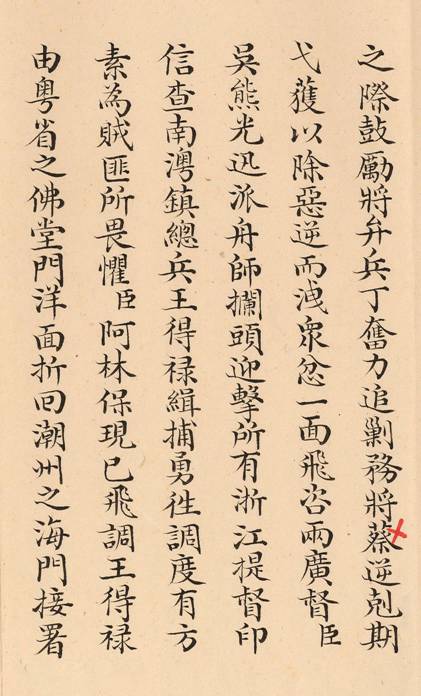 之際鼓勵將弁兵丁奮力追剿務將蔡逆剋期
弋獲以除惡逆而洩衆忿一面飛咨兩廣督臣
吳熊光迅派舟師攔頭迎擊所有浙江提督印
信查南澳鎮總兵王得祿緝捕勇徃調度有方
素為賊匪所畏懼臣阿林保現已飛調王得祿
由粤省之佛堂門洋面折回潮州之海門接署